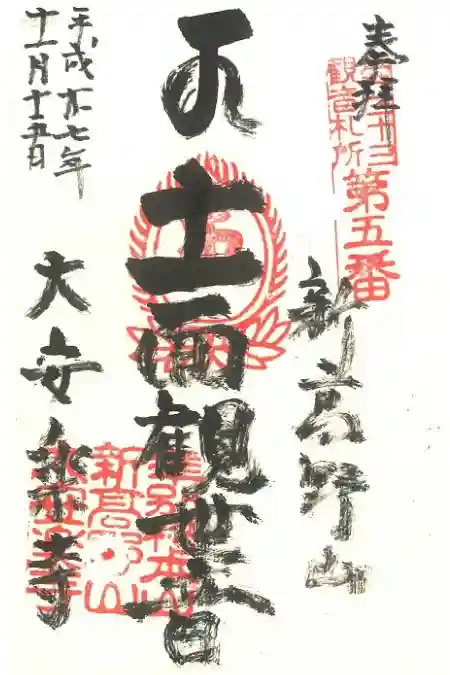 奉拝
観音札所
第五番
新高野山
十一面観世音
準別格本山
新高野山
大安楽寺
平成廿七年
十一月十五日